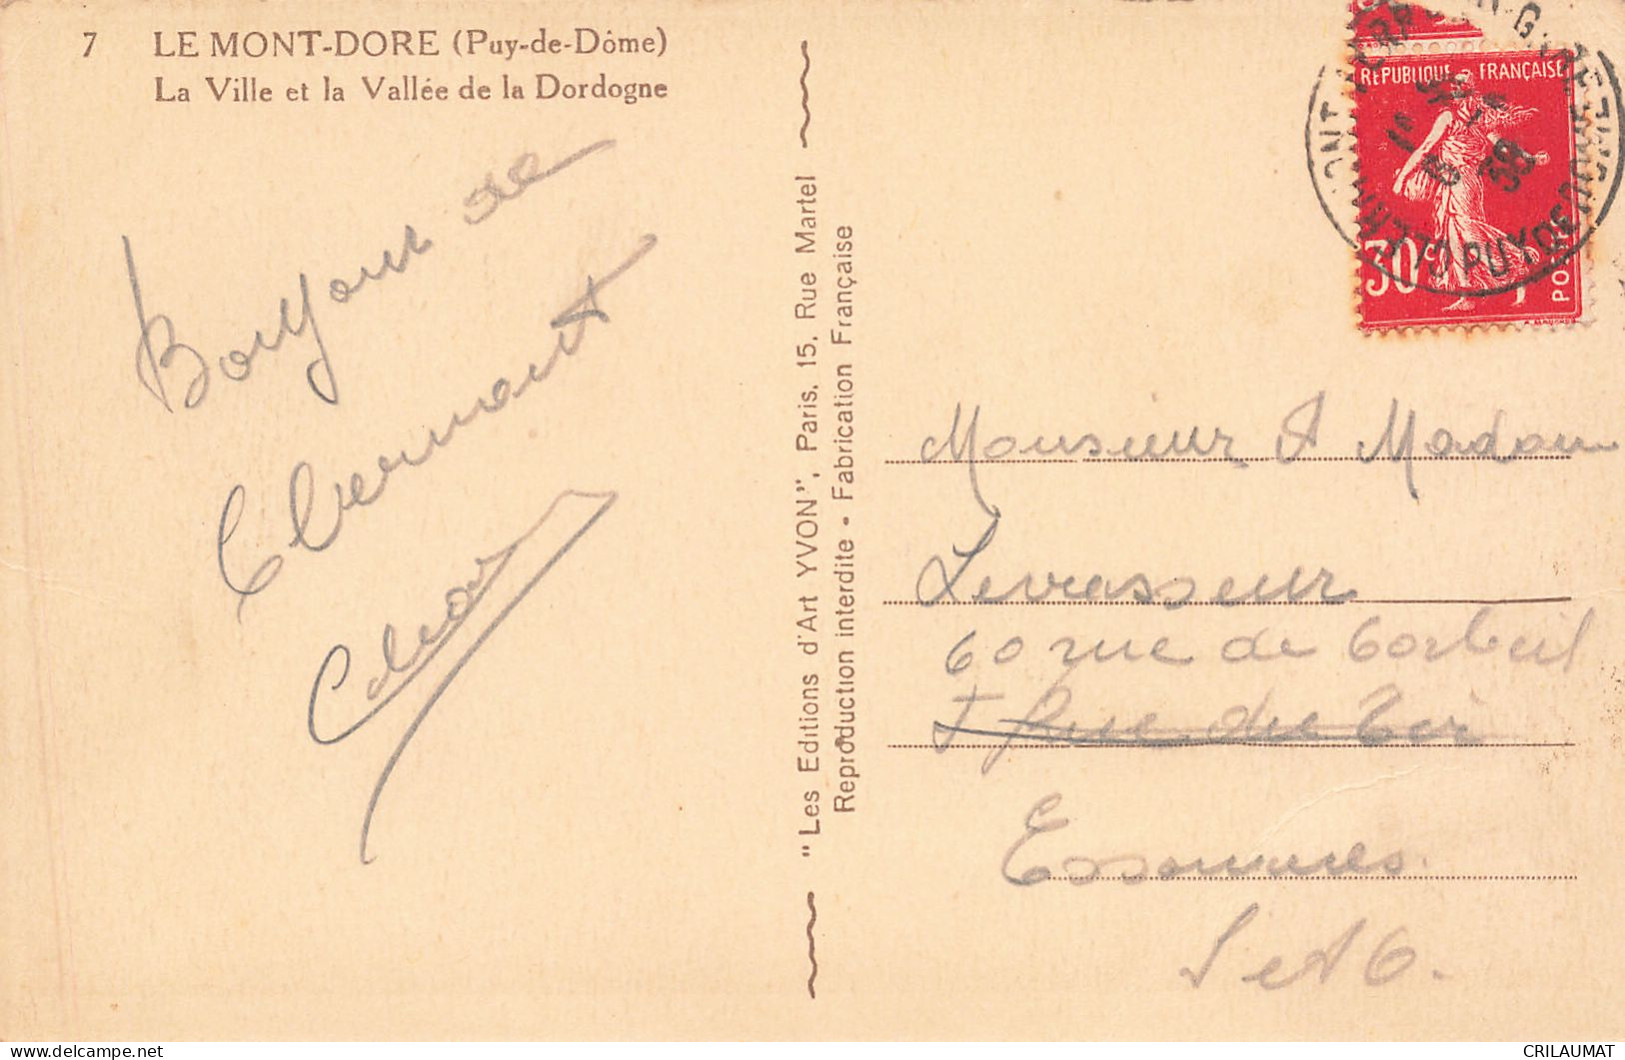 7 LE MONT-DORE (Puy-de-Dôme)
La Ville et la Vallée de la Dordogne
Bonjour de
Clermont
"Les Editions d'Art YVON", Paris, 15, Rue Martel
Reproduction interdite - Fabrication Française
REPUBLIQUE FRANÇAISE
30c
POSTES
PUY DE DOME
38
Monsieur et Madam
Levasseur
60 rue de Corbeil
5 Rue du
Essonnes
S et O.
CRILAUMAT